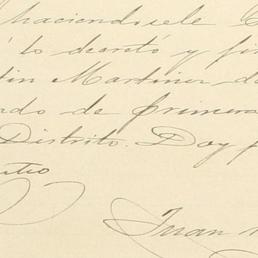 haciendosele
lo decretó y fir
tin Martinez de
ado de primera
Distrito. Doy f
Juan